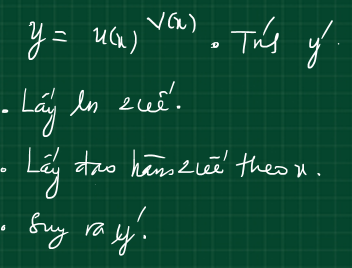 y = u(x)^v(x). Tính y'.
. Lấy ln 2 vế.
. Lấy đạo hàm 2 vế theo x.
. Suy ra y'.